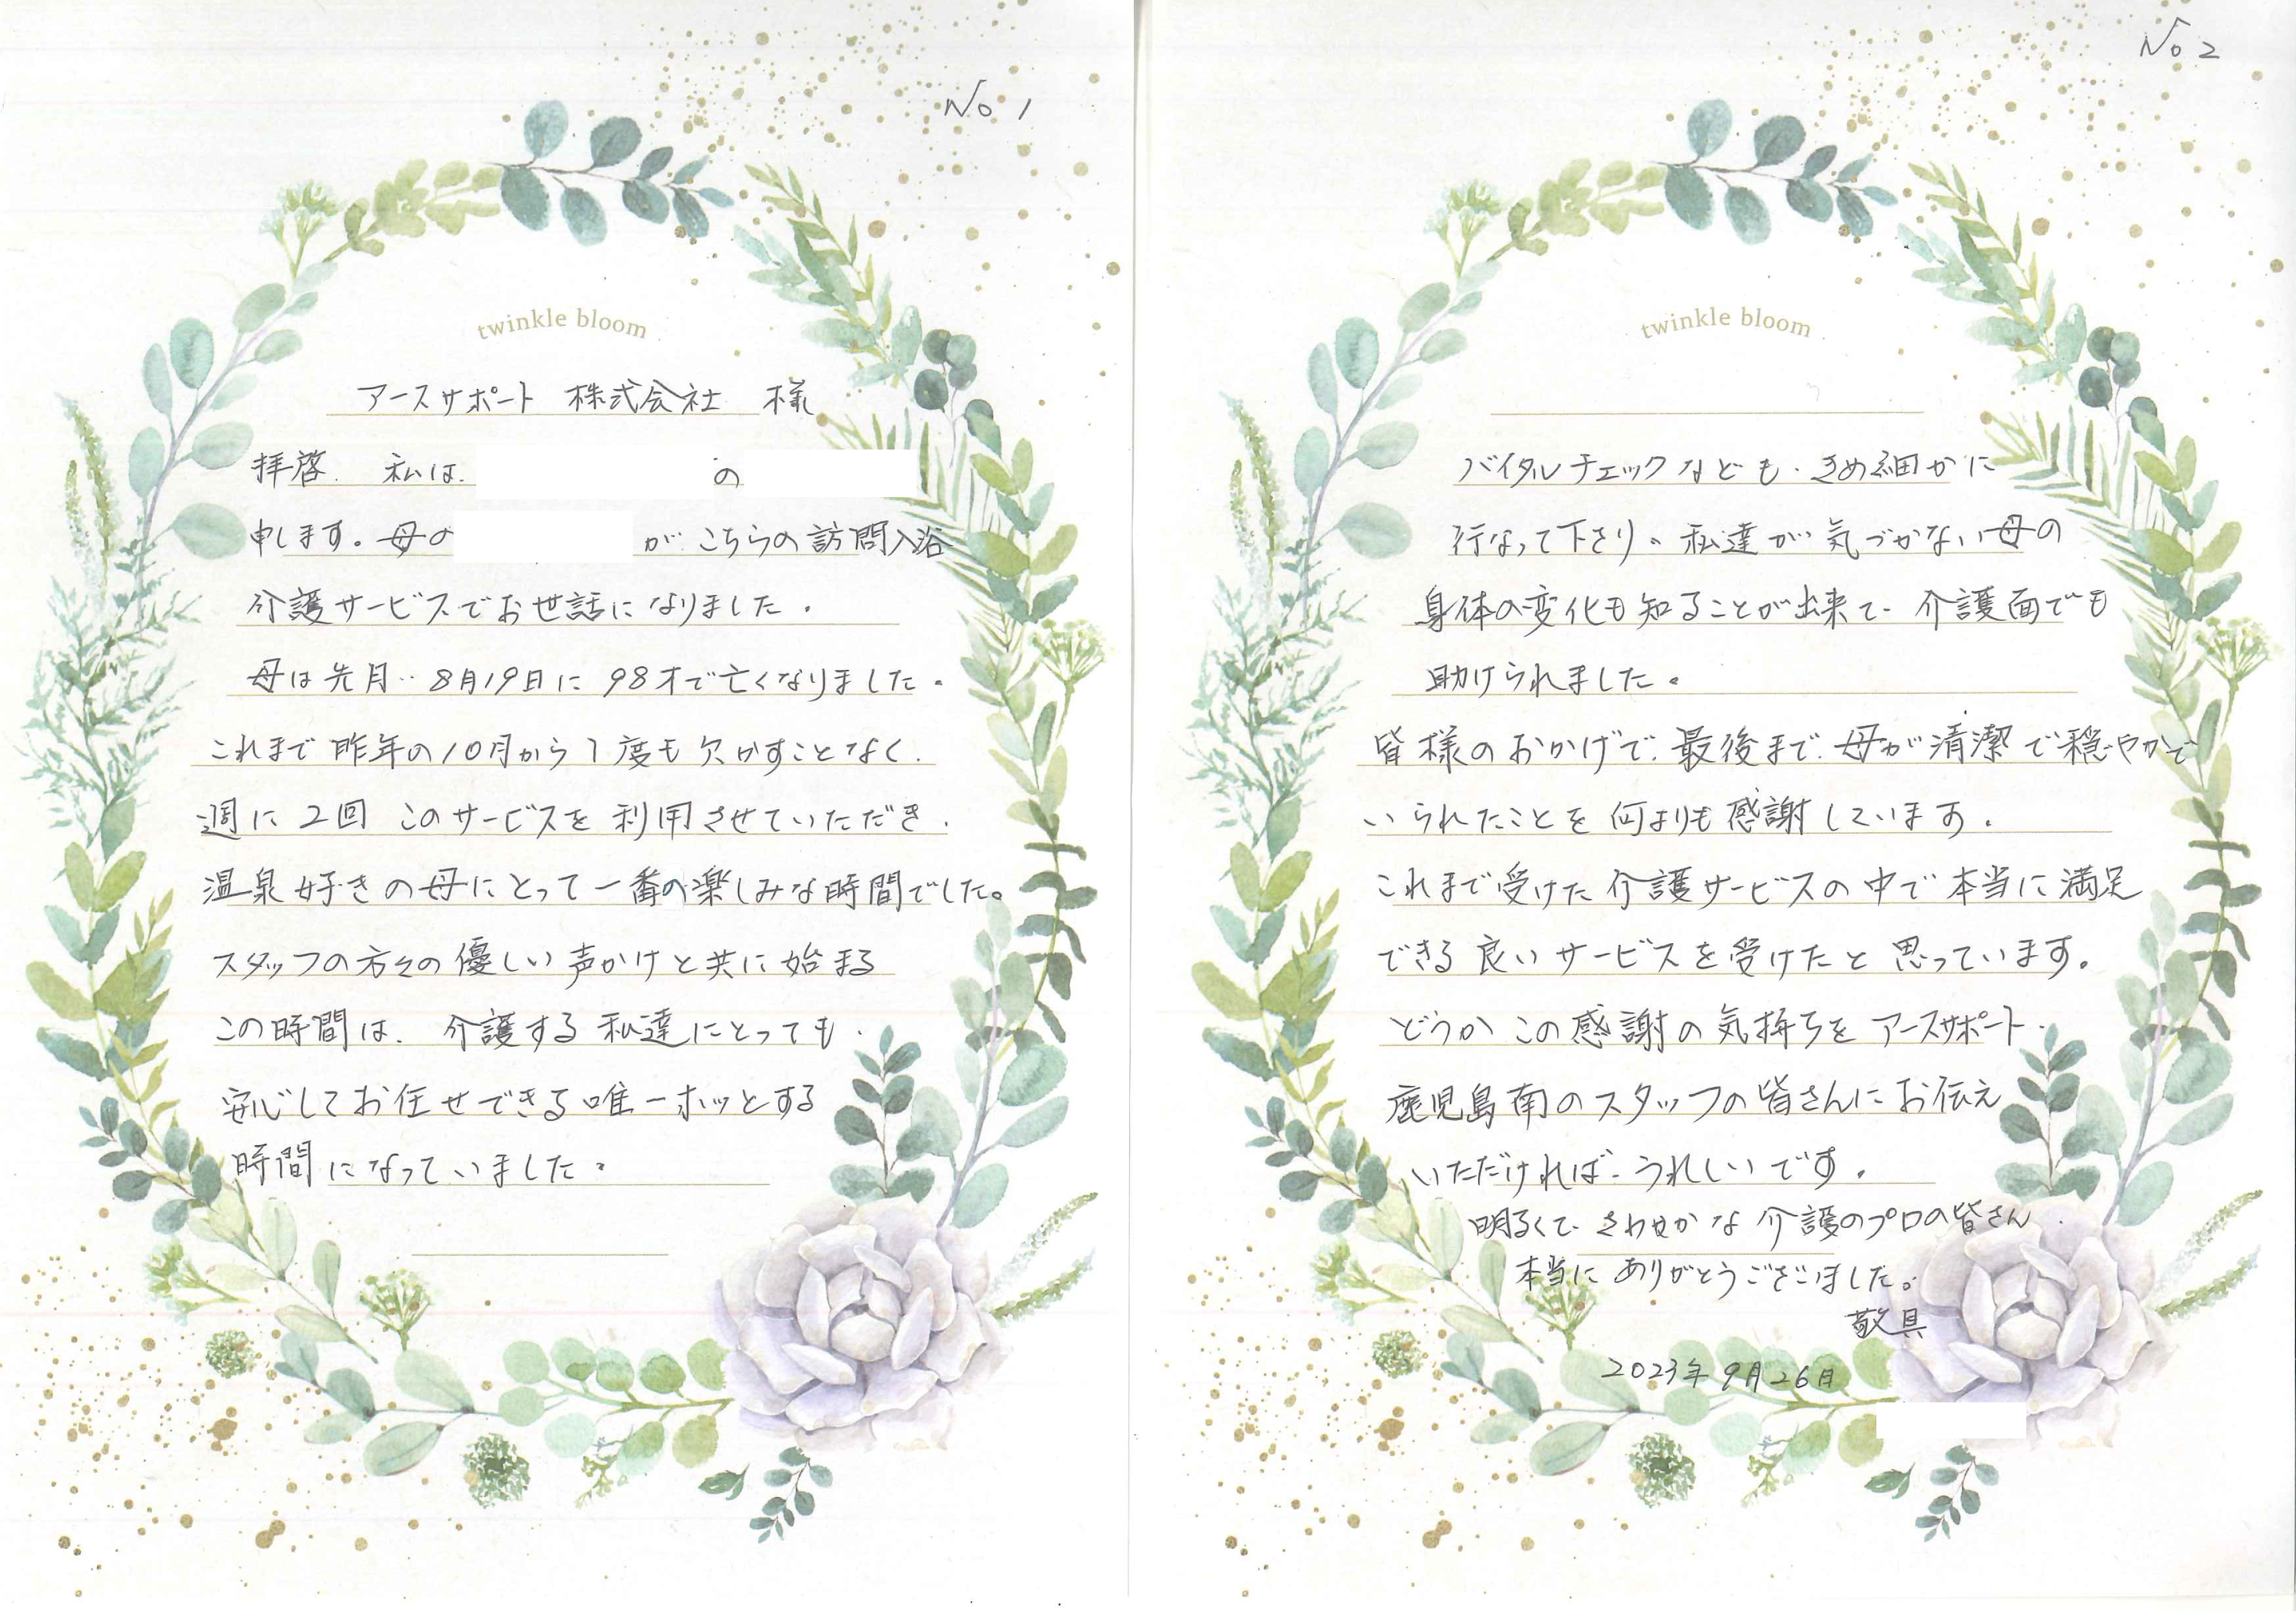 No 1
twinkle bloom
アースサポート 株式会社 様
拝啓. 私は. の
申します。母の が こちらの訪問入浴
介護サービスでお世話になりました.
母は先月‥8月19日に 98才で亡くなりました。
これまで 昨年の10月から1度も欠かすことなく.
週に2回 このサービスを利用させていただき.
温泉好きの母にとって一番の楽しみな時間でした。
スタッフの方々の優しい声かけと共に始まる
この時間は. 介護する私達にとっても.
安心してお任せできる唯一ホッとする
時間になっていました。
No 2
twinkle bloom
バイタルチェックなども. きめ細かに
行なって下さり。私達が気づかない母の
身体の変化も知ることが出来て. 介護面でも
助けられました。
皆様のおかげで. 最後まで. 母が清潔で穏やかで
いられたことを何よりも感謝しています.
これまで受けた介護サービスの中で本当に満足
できる良いサービスを受けたと思っています。
どうかこの感謝の気持ちをアースサポート.
鹿児島南のスタッフの皆さんにお伝え
いただければ. うれしいです.
明るくて. さわやかな介護のプロの皆さん.
本当にありがとうございました。
敬具
2023年9月26日